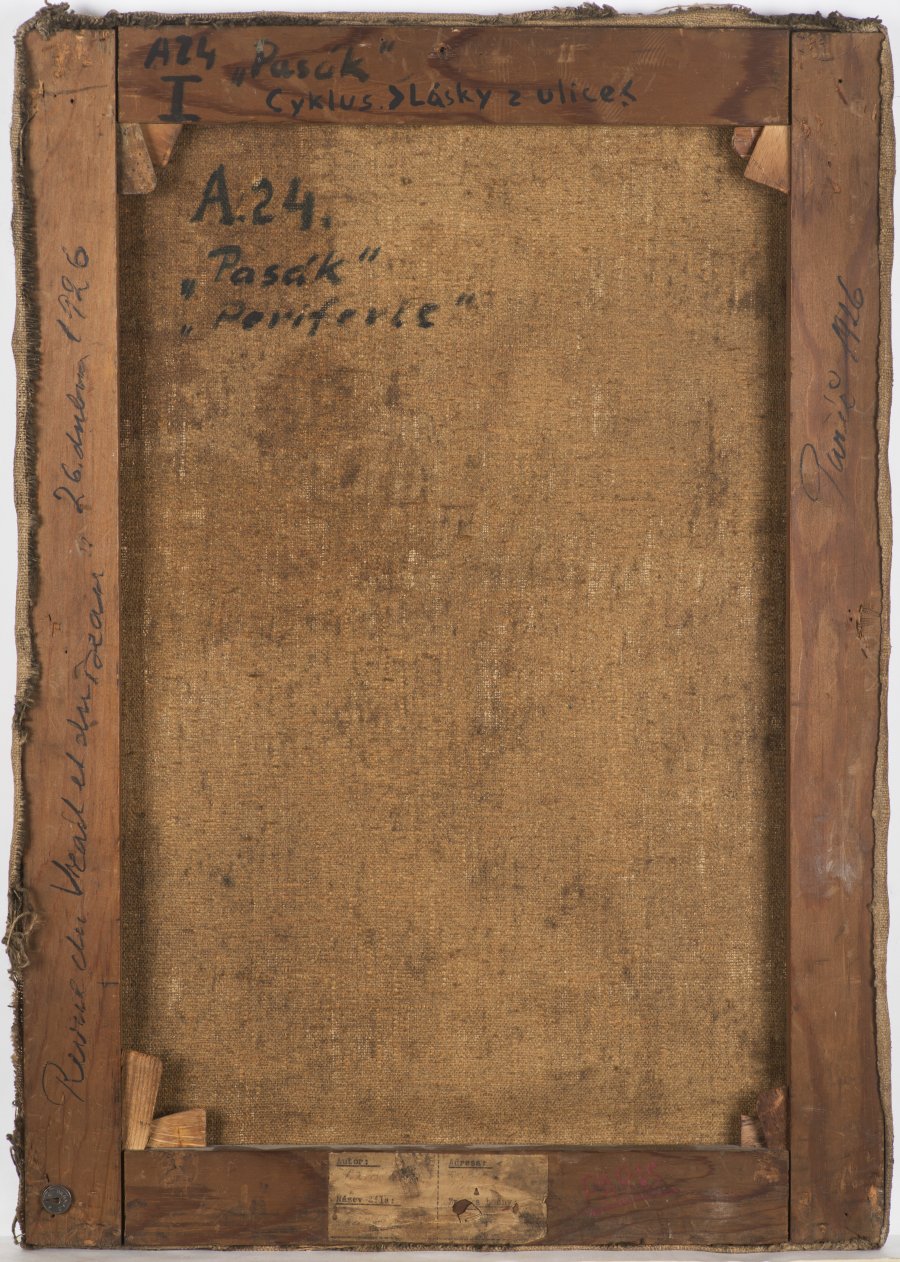 A24 „Pasák“
I Cyklus. >Lásky z ulice<
A.24.
„Pasák“
„Periferie“
Revue du Vrai et du Beau 26. dubna 1926
Paříž 1926
Autor:
Adresa:
Název díla: